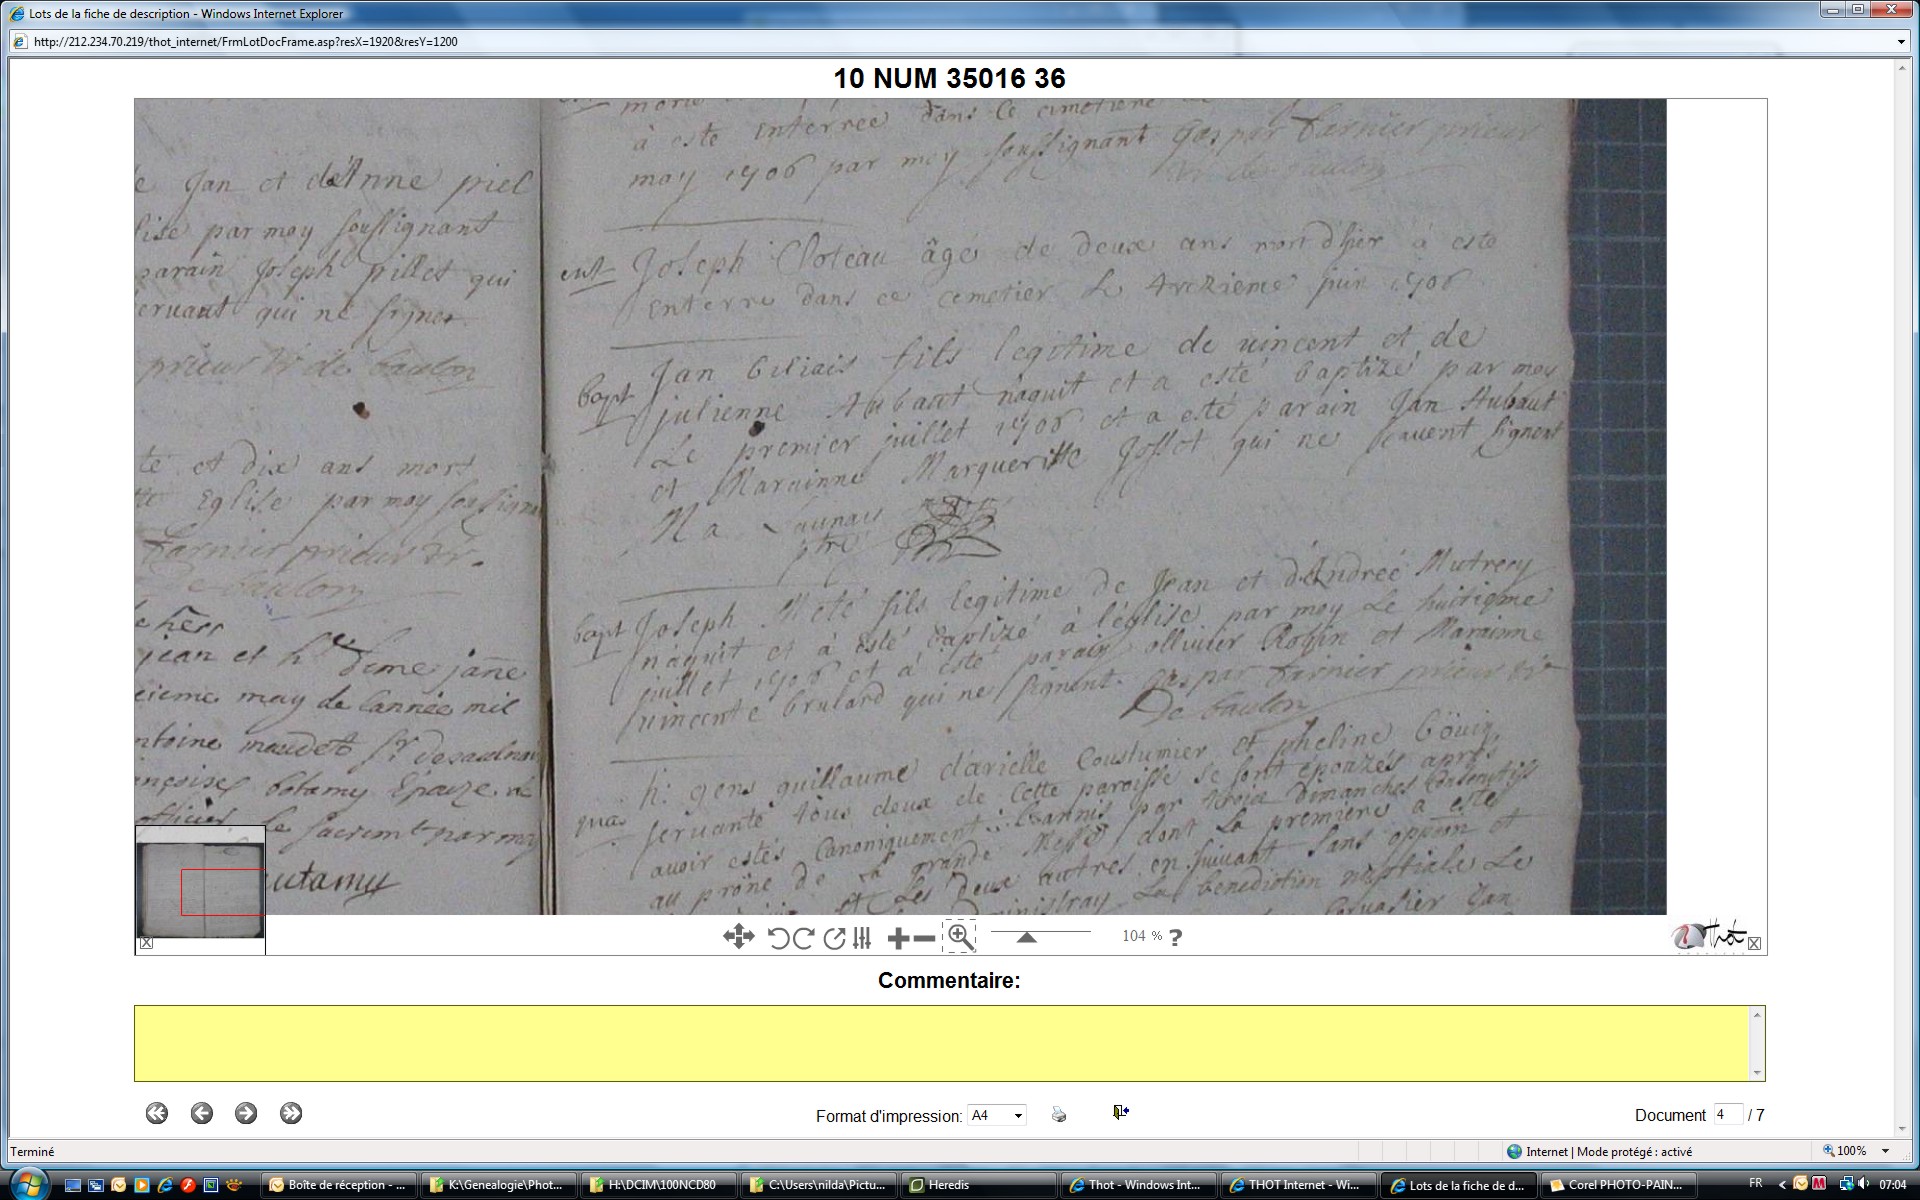 Lots de la fiche de description - Windows Internet Explorer
http://212.234.70.219/thot_internet/FrmLotDocFrame.asp?resX=1920&resY=1200
10 NUM 35016 36
e Jan et d'Anne piel
lise par moy soussignant
parain Joseph pillet qui
ervant qui ne signer
prieur Rr de baulon
te et dix ans mort
Eglise par moy soussigna
Garnier prieur Rr.
De baulon
jean et h dame janne
ieme may de lannée mil
ntoine maudet Sr desaulna
ançoise botamy
officier le sacremt par moy
utamy
dans ce cimetiere
à este enterrée
may 1706 par moy soussignant gaspar Garnier prieur
Rr de baulon
ent Joseph Cloteau âgé de deux ans mort d'hier à este
enterre dans ce cemetier le treizieme juin 1706
bapt Jan biliais fils legitime de vincent et de
julienne Aubaut naquit et a esté baptizé par moy
Le premier juillet 1706 et a esté parain Jan Aubaut
et Marainne Margueritte Josset qui ne scavent signer
Launais
ptre
bapt Joseph Meté fils legitime de Jean et d'Andreé Mutrecy
naquit et à esté baptizé à l'église par moy Le huitieme
juillet 1706 et à esté parain ollivier Robin et Marainne
vincente brulard qui ne signent. gaspar Garnier prieur Rr
De baulon
h. gens guillaume darielle Coustumier et pheline
servante tous deux de Cette paroisse se sont épouzés après
avoir estés Canoniquement bannis par trois dimanches Consecutifs
au prône de la grande Messe, dont La premiere a estes
et Les deux autres en suivant sans oppôn et
La benediction nuptiale Le
Jan
104 % ?
Thot
Commentaire:
Format d'impression: A4
Document 4 / 7
Terminé
Internet | Mode protégé : activé
100%
Boîte de réception - ...
K:\Genealogie\Phot...
H:\DCIM\100NCD80
C:\Users\nilda\Pictu...
Heredis
Thot - Windows Int...
THOT Internet - Wi...
Lots de la fiche de d...
Corel PHOTO-PAIN...
FR
07:04